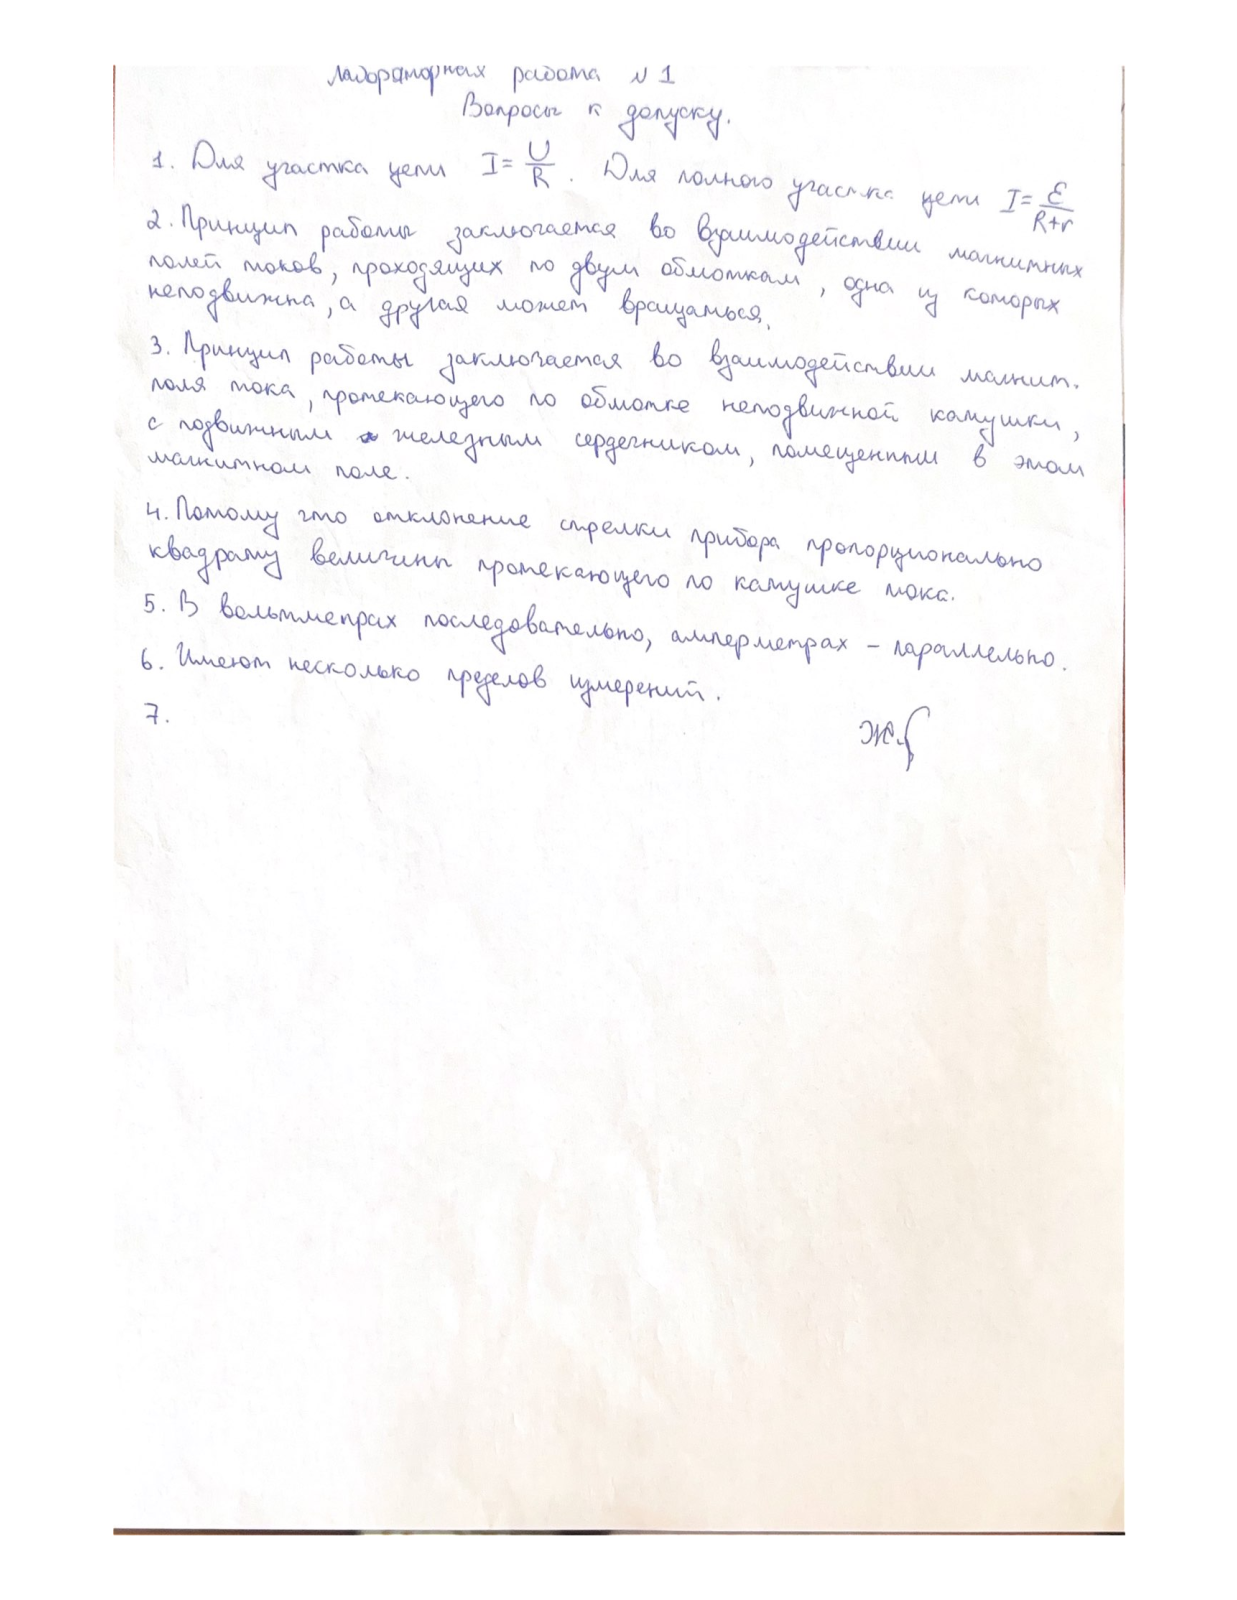 Лабораторная работа № 1
Вопросы к допуску.
1. Для участка цепи I = U/R. Для полного участка цепи I = ℰ/(R+r)
2. Принцип работы заключается во взаимодействии магнитных
полей токов, проходящих по двум обмоткам, одна из которых
неподвижна, а другая может вращаться.
3. Принцип работы заключается во взаимодействии магнит.
поля тока, протекающего по обмотке неподвижной катушки,
с подвижным железным сердечником, помещенным в этом
магнитном поле.
4. Потому что отклонение стрелки прибора пропорционально
квадрату величины протекающего по катушке тока.
5. В вольтметрах последовательно, амперметрах – параллельно.
6. Имеют несколько пределов измерений.
7.